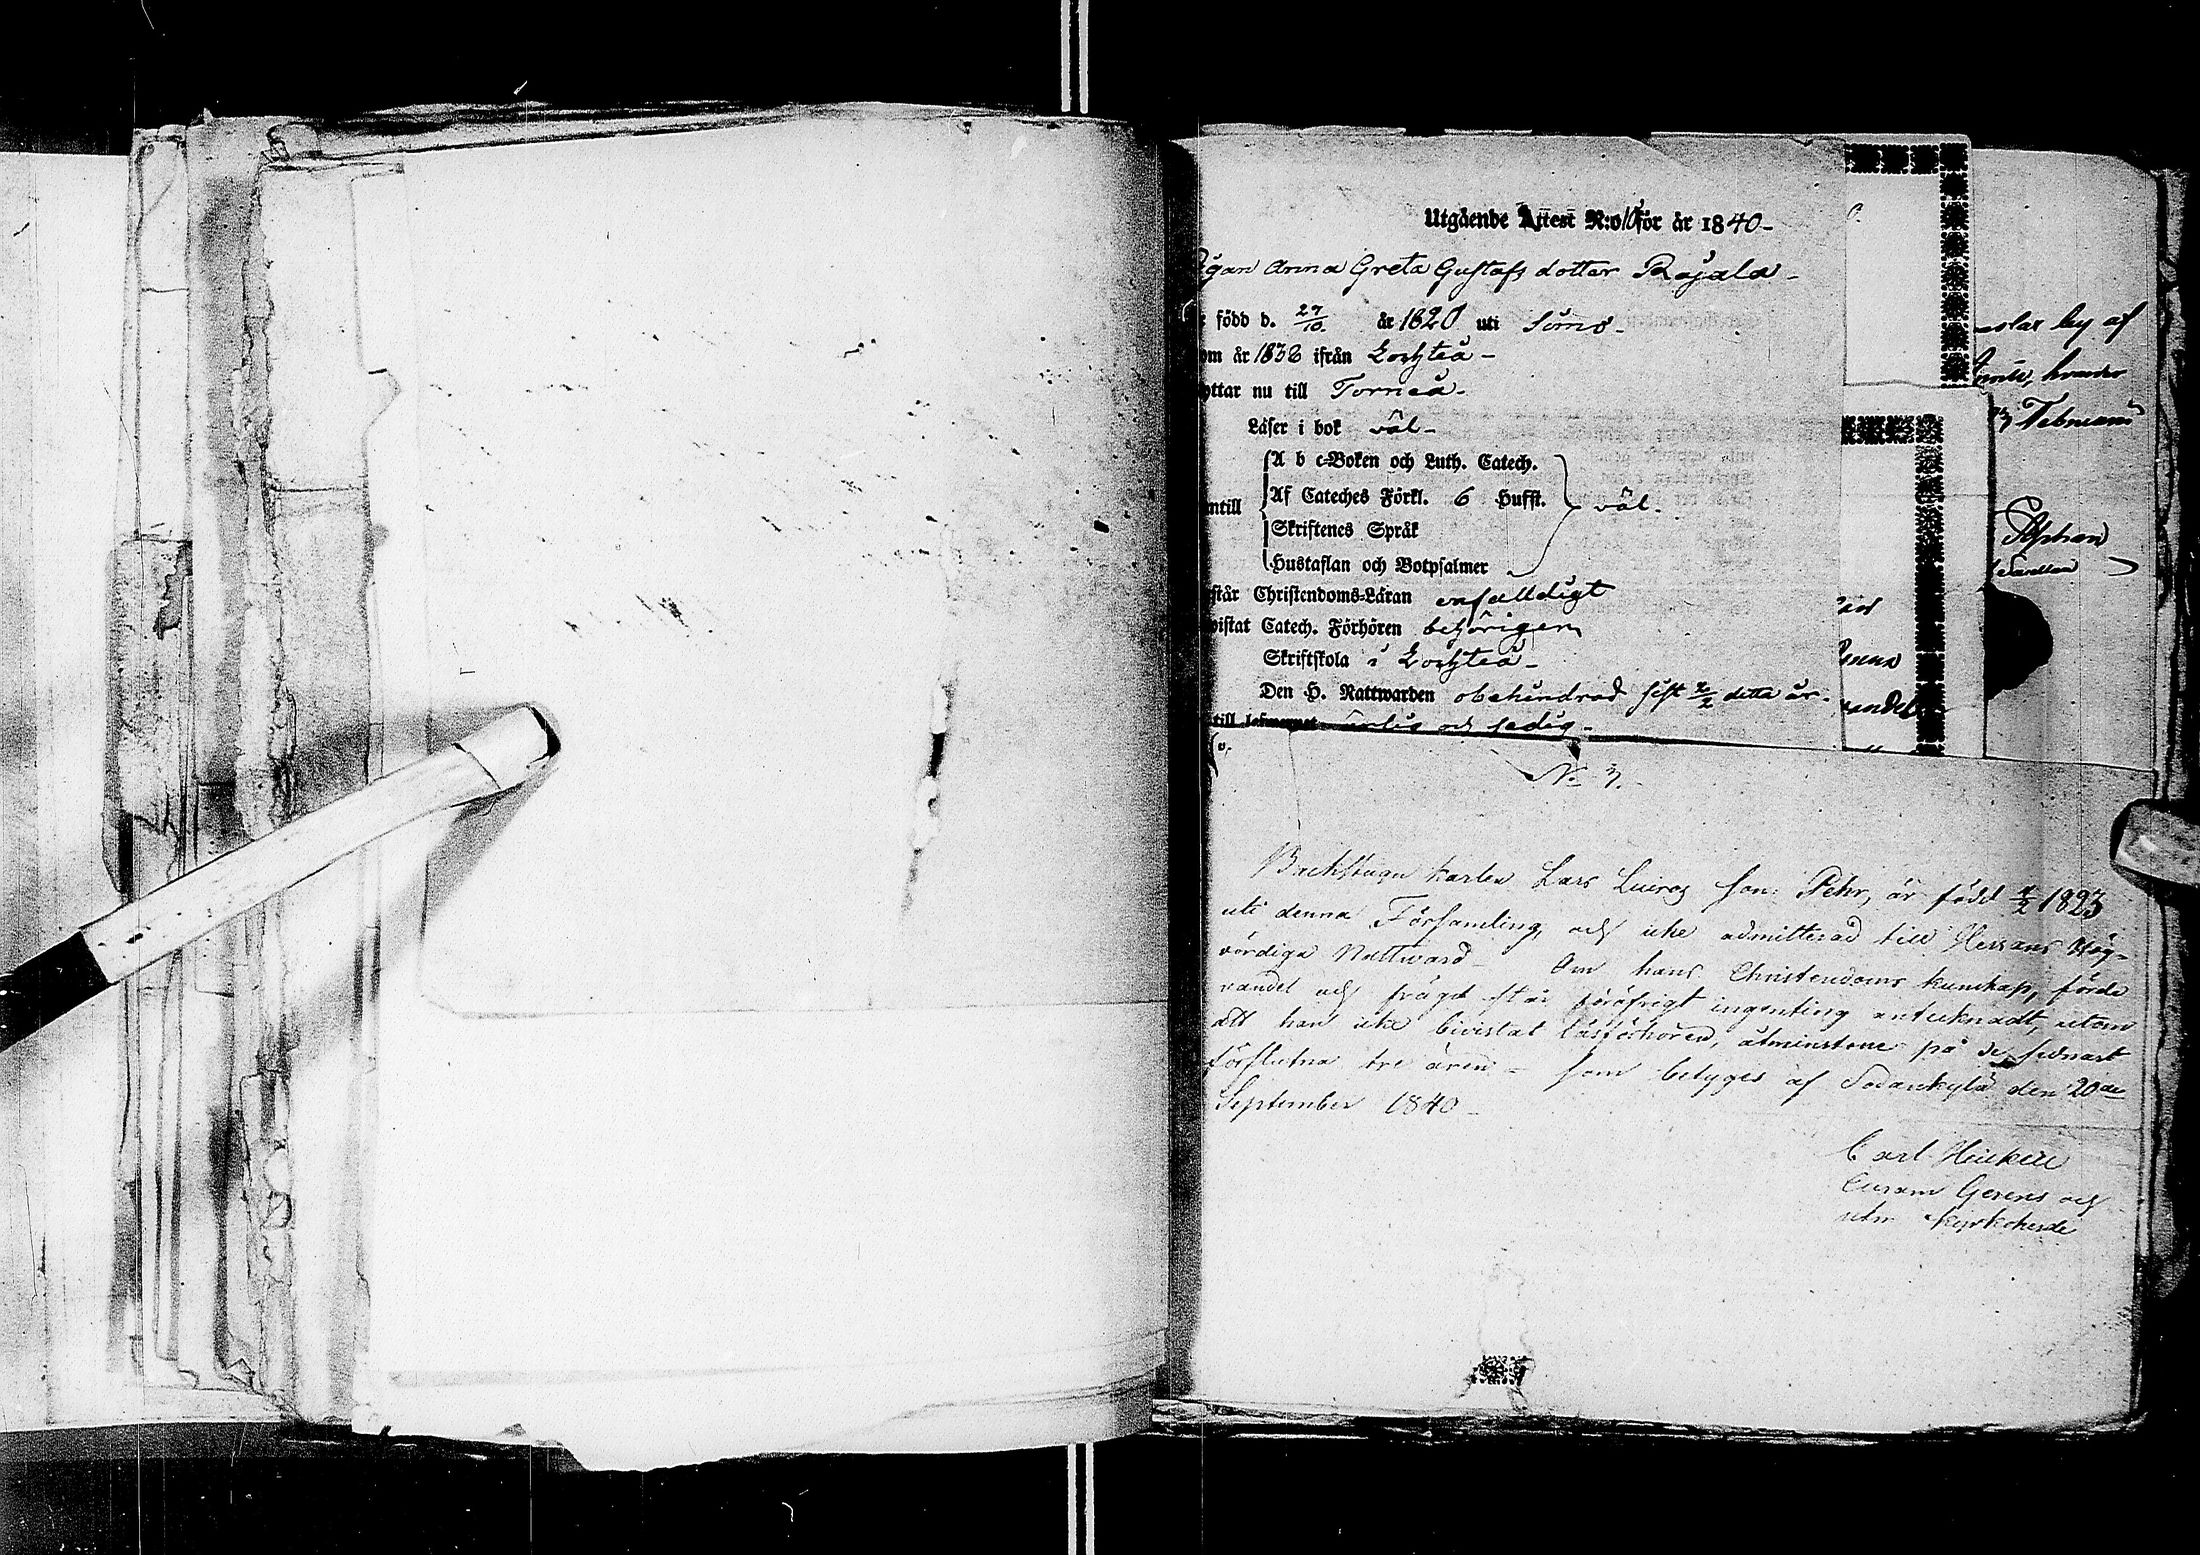 Utgående Attest N:o 10 för år 1840-
Pigan Anna Greta Gustafs dotter Rajala-
född d. 27/10 år 1820 uti Simo-
om år 1838 ifrån Lochteå-
yttar nu till Torneå-
Läser i bok väl-
A b c-Boken och Luth. Catech.
Af Cateches Förkl. 6 Hufst.
ntill väl.
Skriftenes Språk
Hustaflan och Botpsalmer
står Christendoms-Läran enfalldigt
vistat Catech. Förhören behörigen
Skriftskola i Lochteå-
Den H. Nattwarden obehindrad sist 2/2 detta år-
till ärlig och sedig-
olar by af
hvander
Stephan
vandel
No 3.
Backstugu karlen Lars Luiros son: Pehr, är född 4/2 1823
uti denna Församling, och icke admitterad till Herrans Hög-
vördiga Nattward- Om hans Christendoms kunskap, förde
vandel och frägd står föröfrigt ingenting antecknadt, utom
att han icke bivistat läsförhören, åtminstone på de sednast
förflutna tre åren - som betyges af Sodankylä den 20de
September 1840-
Carl Heickell
Curam Gerens och
utn. Kyrkoherde